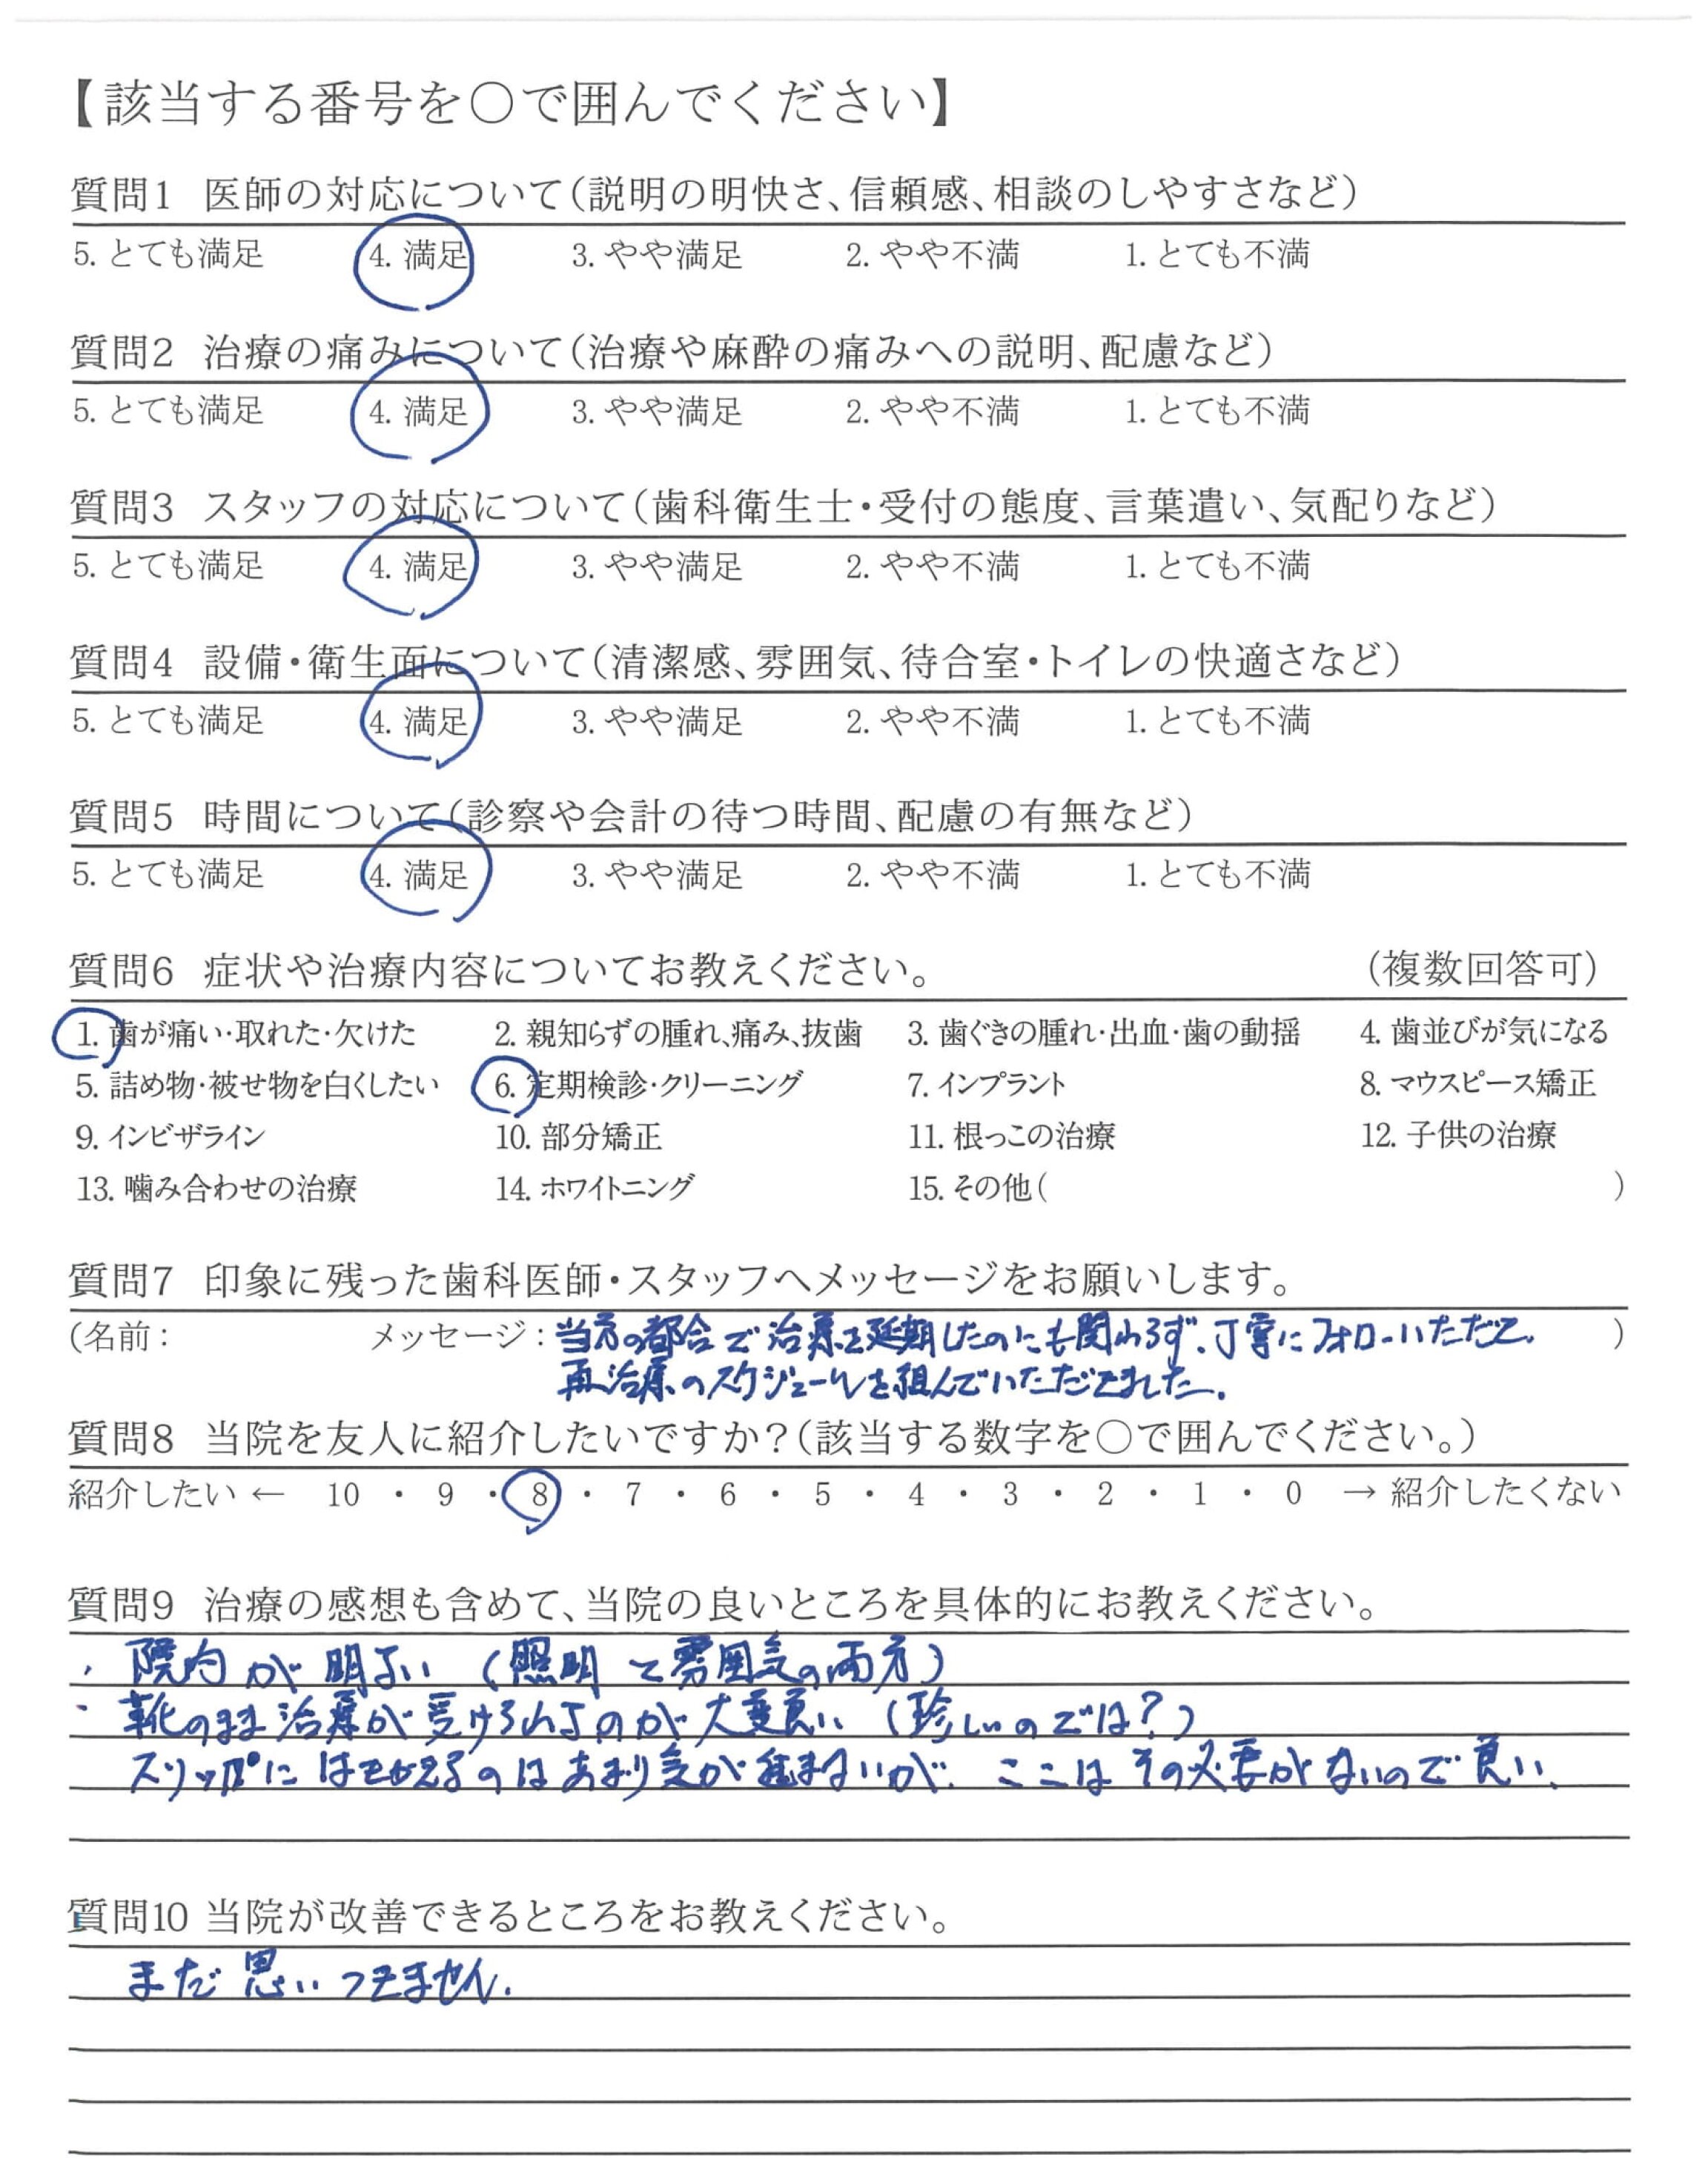 【該当する番号を〇で囲んでください】
質問1 医師の対応について(説明の明快さ、信頼感、相談のしやすさなど)
5. とても満足 4. 満足 3. やや満足 2. やや不満 1. とても不満
質問2 治療の痛みについて(治療や麻酔の痛みへの説明、配慮など)
5. とても満足 4. 満足 3. やや満足 2. やや不満 1. とても不満
質問3 スタッフの対応について(歯科衛生士・受付の態度、言葉遣い、気配りなど)
5. とても満足 4. 満足 3. やや満足 2. やや不満 1. とても不満
質問4 設備・衛生面について(清潔感、雰囲気、待合室・トイレの快適さなど)
5. とても満足 4. 満足 3. やや満足 2. やや不満 1. とても不満
質問5 時間について(診察や会計の待つ時間、配慮の有無など)
5. とても満足 4. 満足 3. やや満足 2. やや不満 1. とても不満
質問6 症状や治療内容についてお教えください。 (複数回答可)
1. 歯が痛い・取れた・欠けた 2. 親知らずの腫れ、痛み、抜歯 3. 歯ぐきの腫れ・出血・歯の動揺 4. 歯並びが気になる
5. 詰め物・被せ物を白くしたい 6. 定期検診・クリーニング 7. インプラント 8. マウスピース矯正
9. インビザライン 10. 部分矯正 11. 根っこの治療 12. 子供の治療
13. 噛み合わせの治療 14. ホワイトニング 15. その他( )
質問7 印象に残った歯科医師・スタッフへメッセージをお願いします。
(名前: メッセージ: 当方の都合で治療を延期したのにも関わらず、丁寧にフォローいただき、 )
再治療のスケジュールを組んでいただきました。
質問8 当院を友人に紹介したいですか?(該当する数字を〇で囲んでください。)
紹介したい ← 10 ・ 9 ・ 8 ・ 7 ・ 6 ・ 5 ・ 4 ・ 3 ・ 2 ・ 1 ・ 0 → 紹介したくない
質問9 治療の感想も含めて、当院の良いところを具体的にお教えください。
・ 院内が明るい (照明と雰囲気の両方)
・ 靴のまま治療が受けられるのが大変良い (珍しいのでは?)
スリッパにはきかえるのはあまり気が進まないが、ここはその必要がないので良い、
質問10 当院が改善できるところをお教えください。
まだ思いつきません。